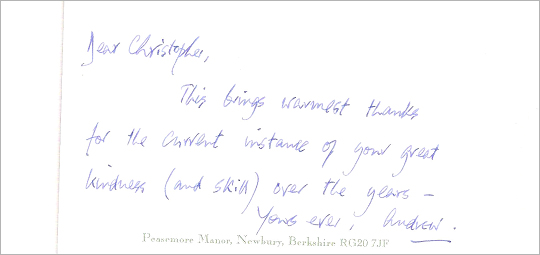 Dear Christopher,
This brings warmest thanks
for the current instance of your great
kindness (and skill) over the years –
Yours ever, Andrew.
Peasemore Manor, Newbury, Berkshire RG20 7JF